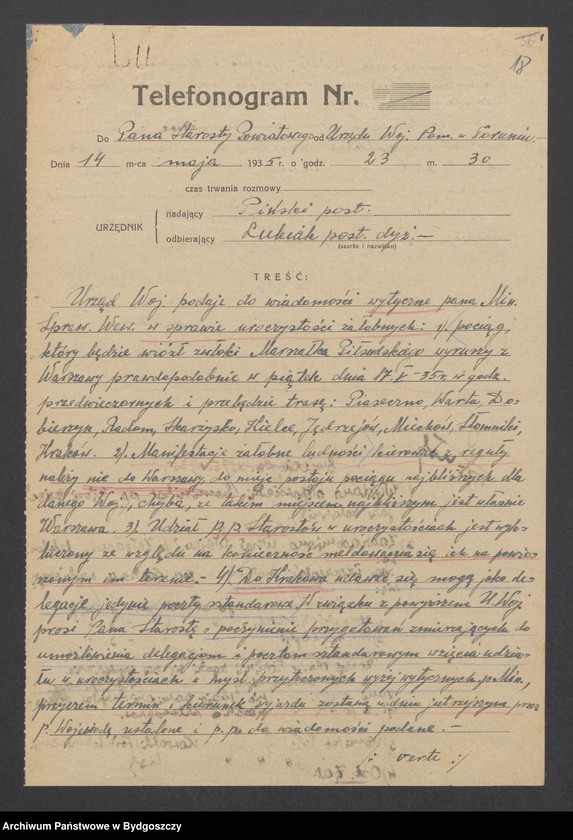 36
18
Telefonogram Nr.
Do Pana Starosty Powiatowego od Urzędu Woj. Pom. w Toruniu.-
Dnia 14 m-ca maja 1935 r. o godz. 23 m. 30
czas trwania rozmowy
URZĘDNIK
nadający Piński post.
odbierający Lubiak post. dyż. —
(szarża i nazwisko)
TREŚĆ:
Urząd Woj. podaje do wiadomości wytyczne pana Min.
Spraw. Wew. w sprawie uroczystości żałobnych: 1) pociąg,
który będzie wiózł zwłoki Marszałka Piłsudskiego wyruszy z
Warszawy prawdopodobnie w piątek dnia 17.V-35 r. w godz.
przedwieczornych i przebędzie trasę: Piaseczno, Warka, Do-
bieszyn, Radom, Skarżysko, Kielce, Jędrzejów, Miechów, Słomniki,
Kraków. 2) Manifestacje żałobne ludności kierować z reguły
należy nie do Warszawy, do miejsc postoju pociągu najbliższych dla
danego Woj., chyba, że takim miejscem najbliższym jest właśnie
Warszawa. 3) Udział p.p. Starostów w uroczystościach jest wyk-
luczony ze względu na konieczność na powie-
rzonym im terenie. - 4) Do Krakowa udawać się mogą jako de-
legacje jedynie poczty sztandarowe. W związku z powyższem U. Woj.
prosi Pana Starostę o poczynienie przygotowań zmierzających do
umożliwienia delegacjom i pocztom sztandarowym wzięcia udzia-
łu w uroczystościach w myśl przytoczonych wyżej wytycznych p. Min.,
przyczem termin i kierunek wyjazdu zostaną w dniu jutrzejszym przez
P. Wojewodę ustalone i p.p. do wiadomości podane. —
/: verte :/
Archiwum Państwowe w Bydgoszczy